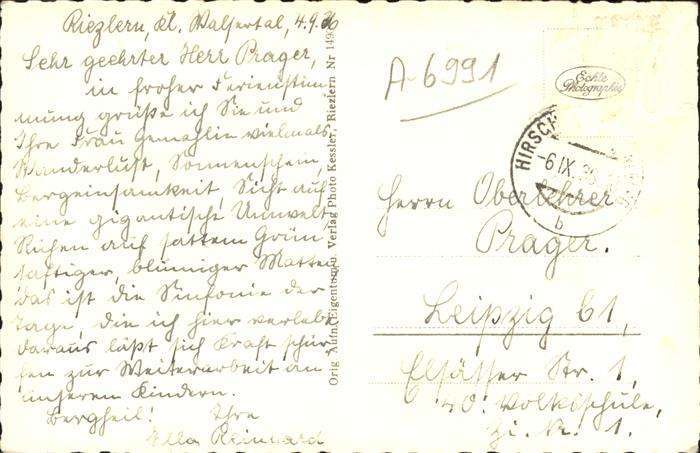 Riezlern, Kl. Walsertal, 4.9.36
Sehr geehrter Herr Prager,
in froher Ferienstim
mung grüße ich Sie und
Ihre Frau Gemahlin vielmals.
Wanderlust, Sonnenschein,
Bergeinsamkeit, Sicht auf
eine gigantische Umwelt
Ruhen auf sattem Grün
saftiger, blumiger Matten
das ist die Sinfonie der
Tage, die ich hier verlebe
daraus läßt sich Kraft schür
fen zur Weiterarbeit an
unseren Kindern.
Bergheil! Ihre
Ella Reinhard
Orig. Aufn. Eigentum u. Verlag Photo Kessler, Riezlern Nr 149
A-6991
Echte
Photographie
HIRSCH
-6.IX.36
b
Herrn Oberlehrer
Prager.
Leipzig C1,
Elsässer Str. 1,
40. Volksschule,
1.